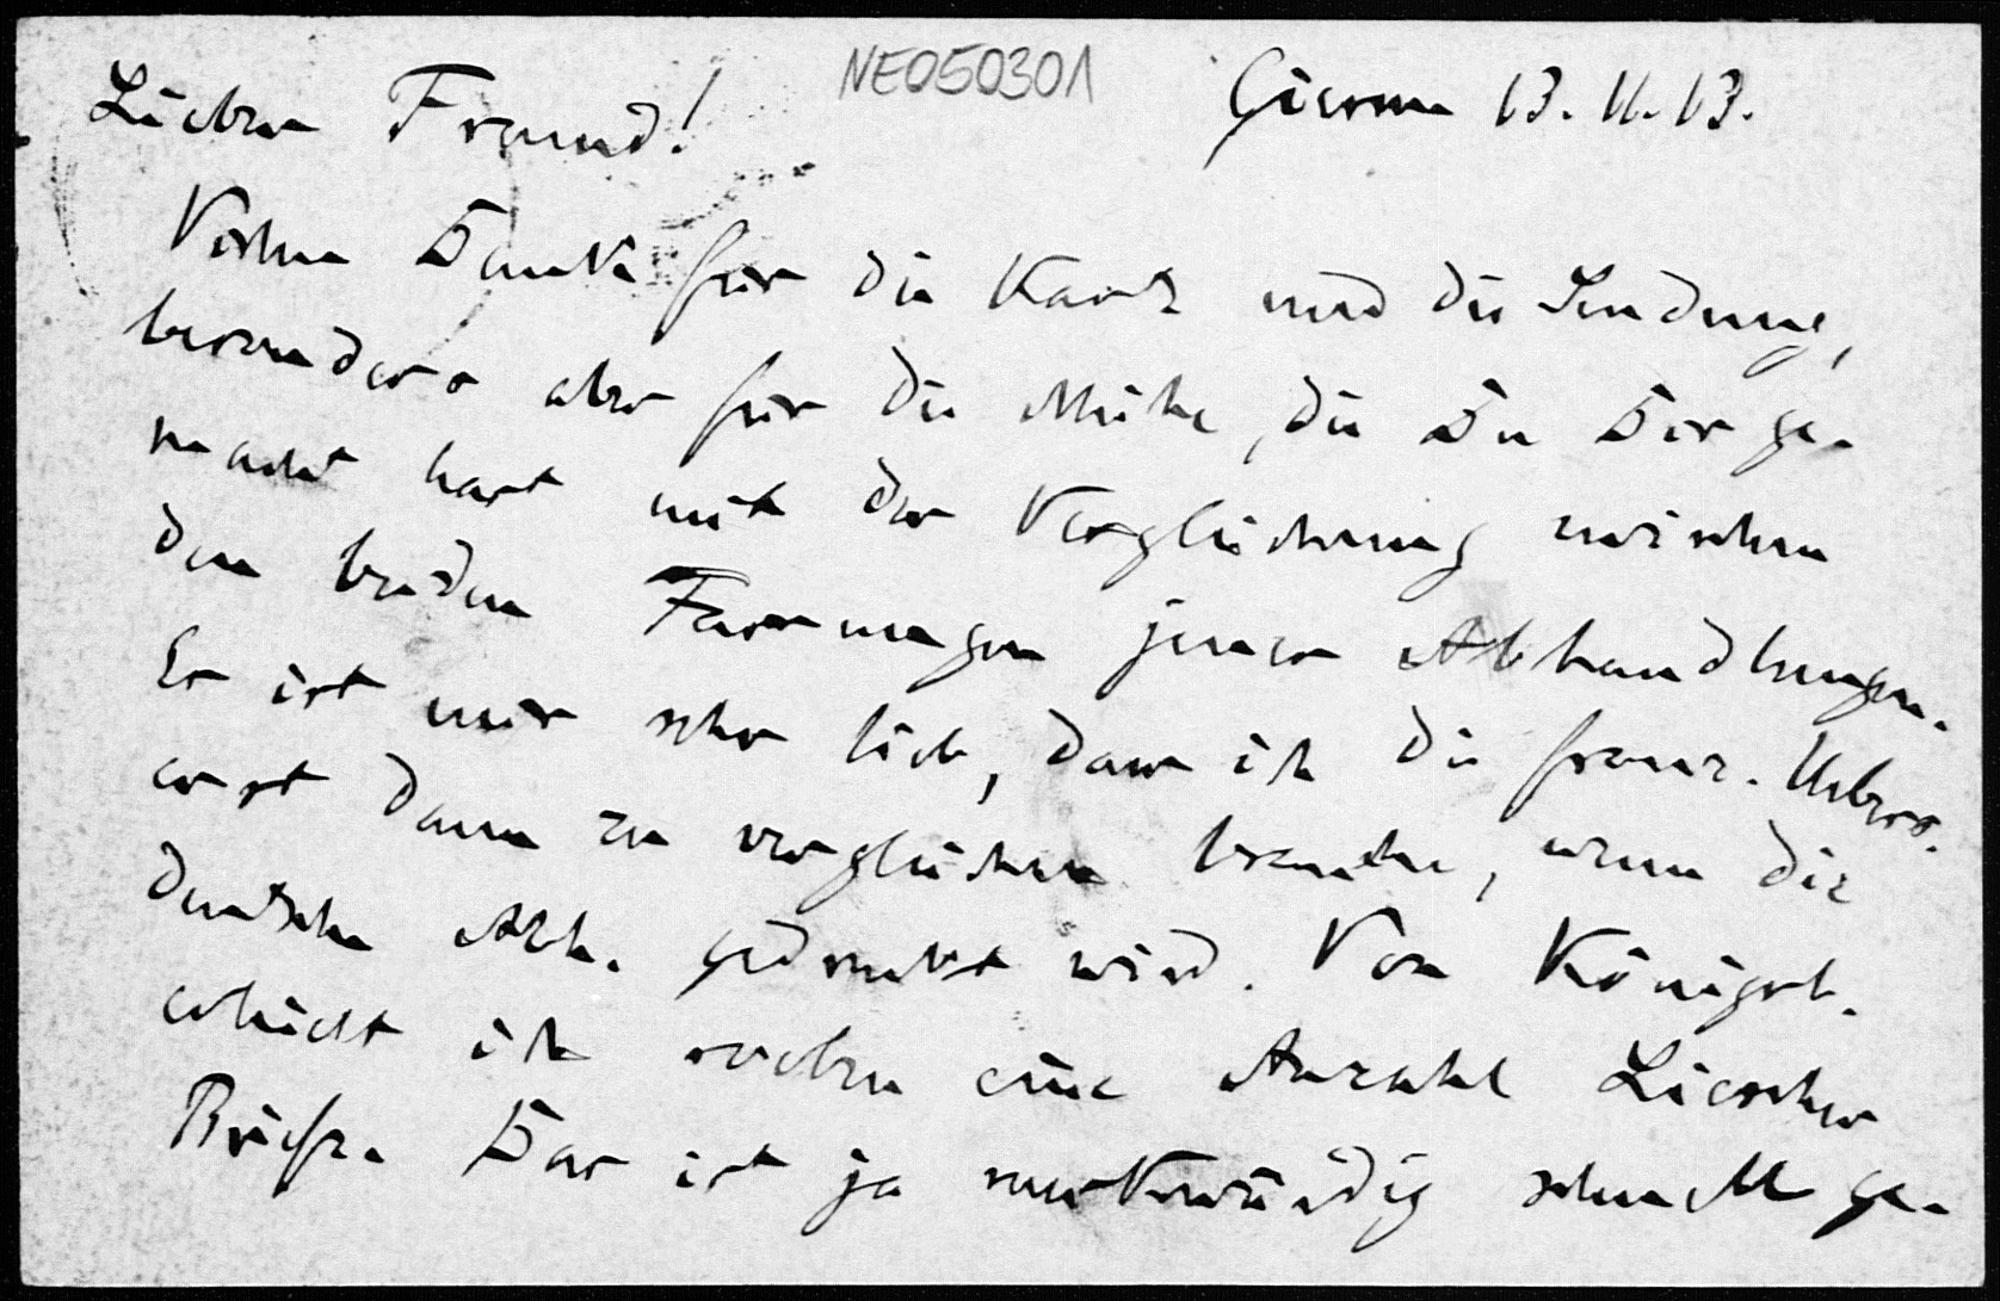 NE050301
Giessen 13. 11. 13.
Lieber Freund!
Vielen Dank für die Karte und die Sendung,
besonders aber für die Mühe, die Du Dir ge-
macht hast mit der Vergleichung zwischen
den beiden Fassungen jener Abhandlungen.
Es ist mir sehr lieb, dass ich die franz. Uebers.
erst dann zu vergleichen brauche, wenn die
deutsche Abh. gedruckt wird. Von Königsb.
erhielt ich soeben eine Anzahl Liescher
Briefe. Das ist ja merkwürdig schnell ge-